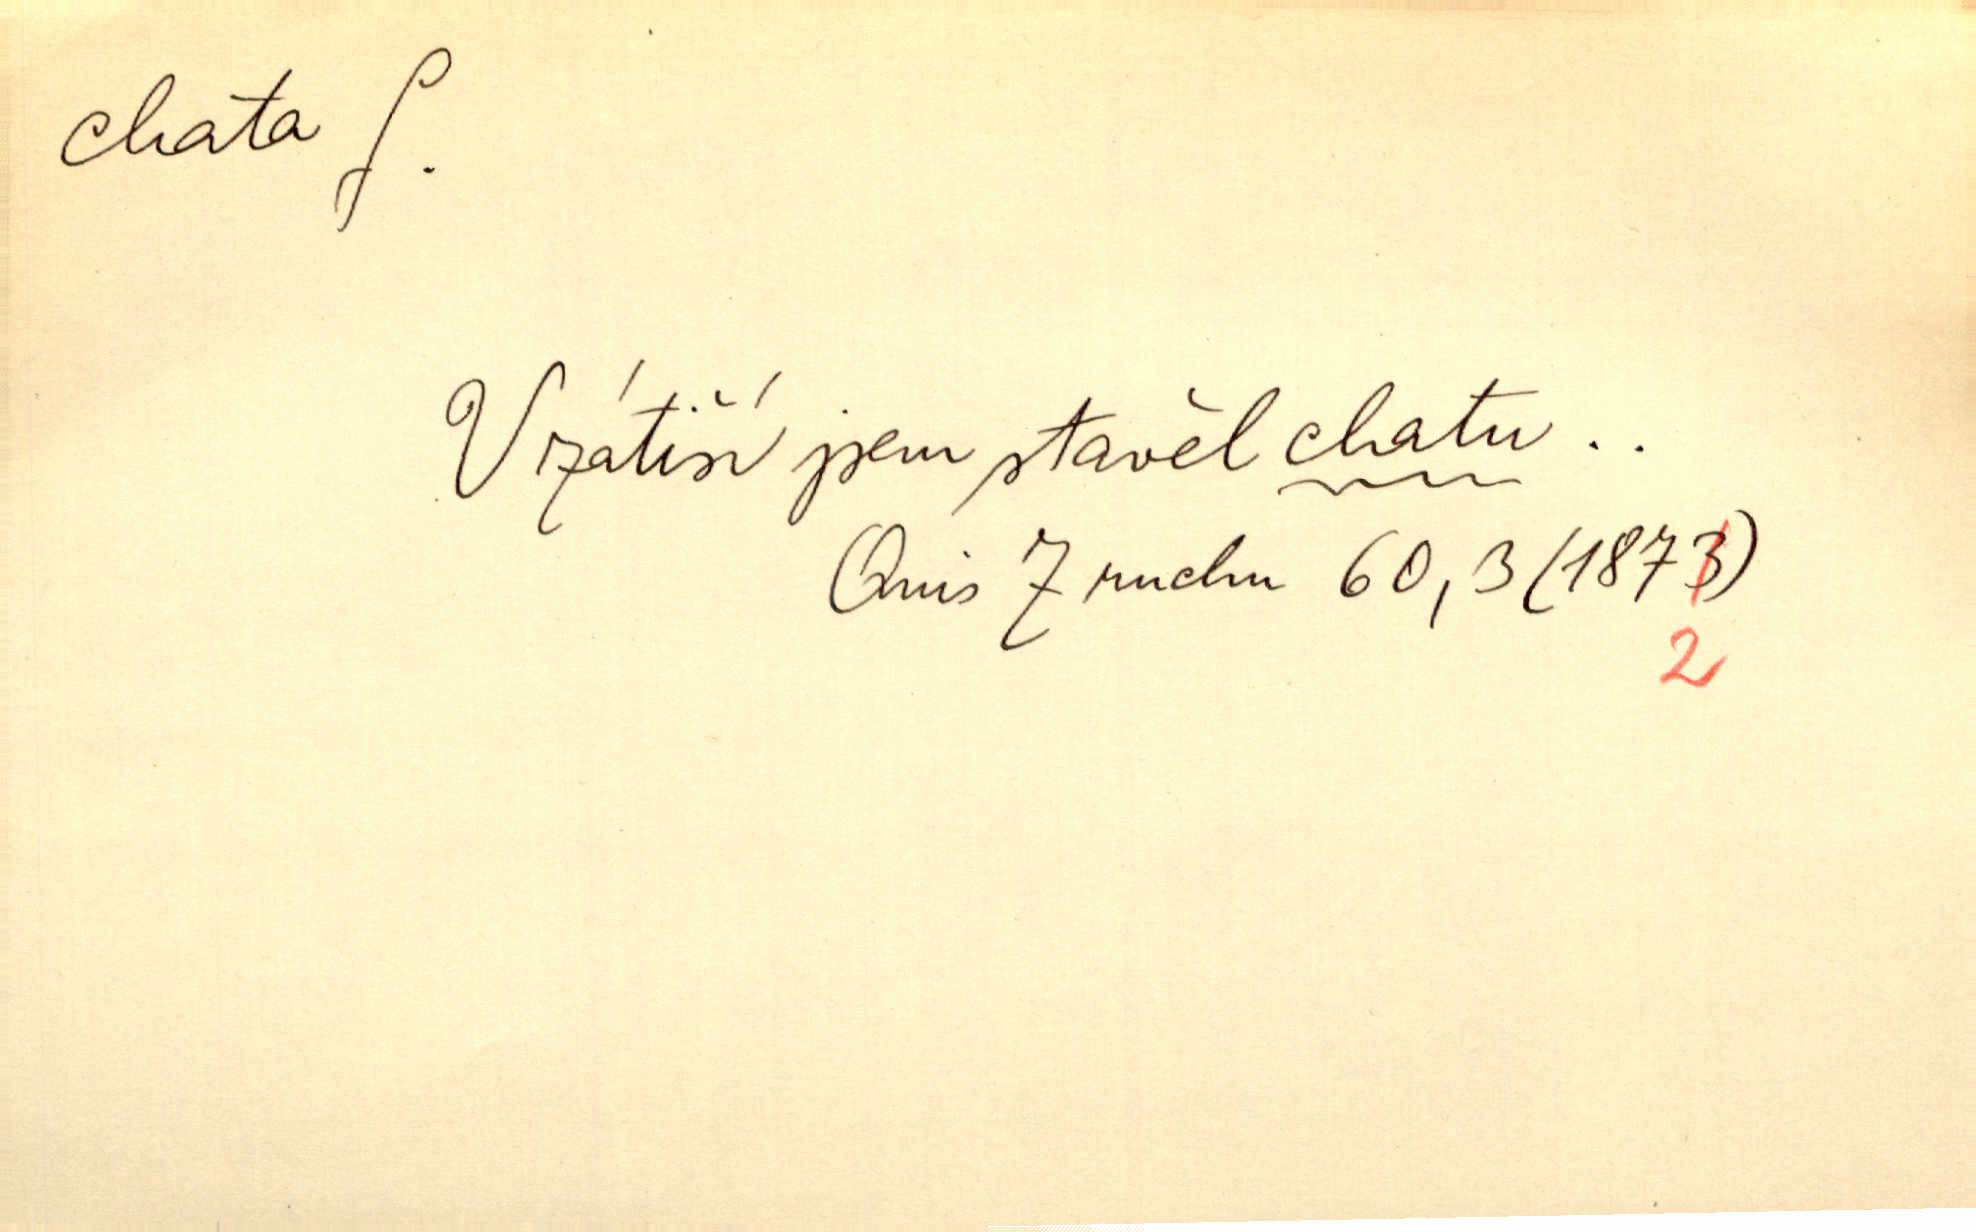 chata f.
V zátiší jsem stavěl chatu ..
Quis Z ruchu 60,3 (1873)
2